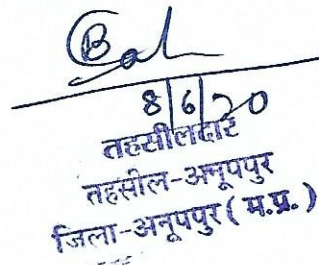 8/6/20
तहसीलदार
तहसील-अनूपपुर
जिला-अनूपपुर (म.प्र.)